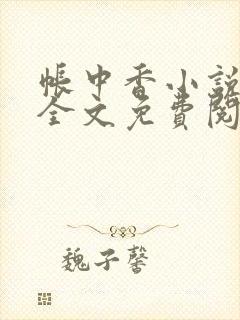 帳中香小說
全文免費閱
魏子馨